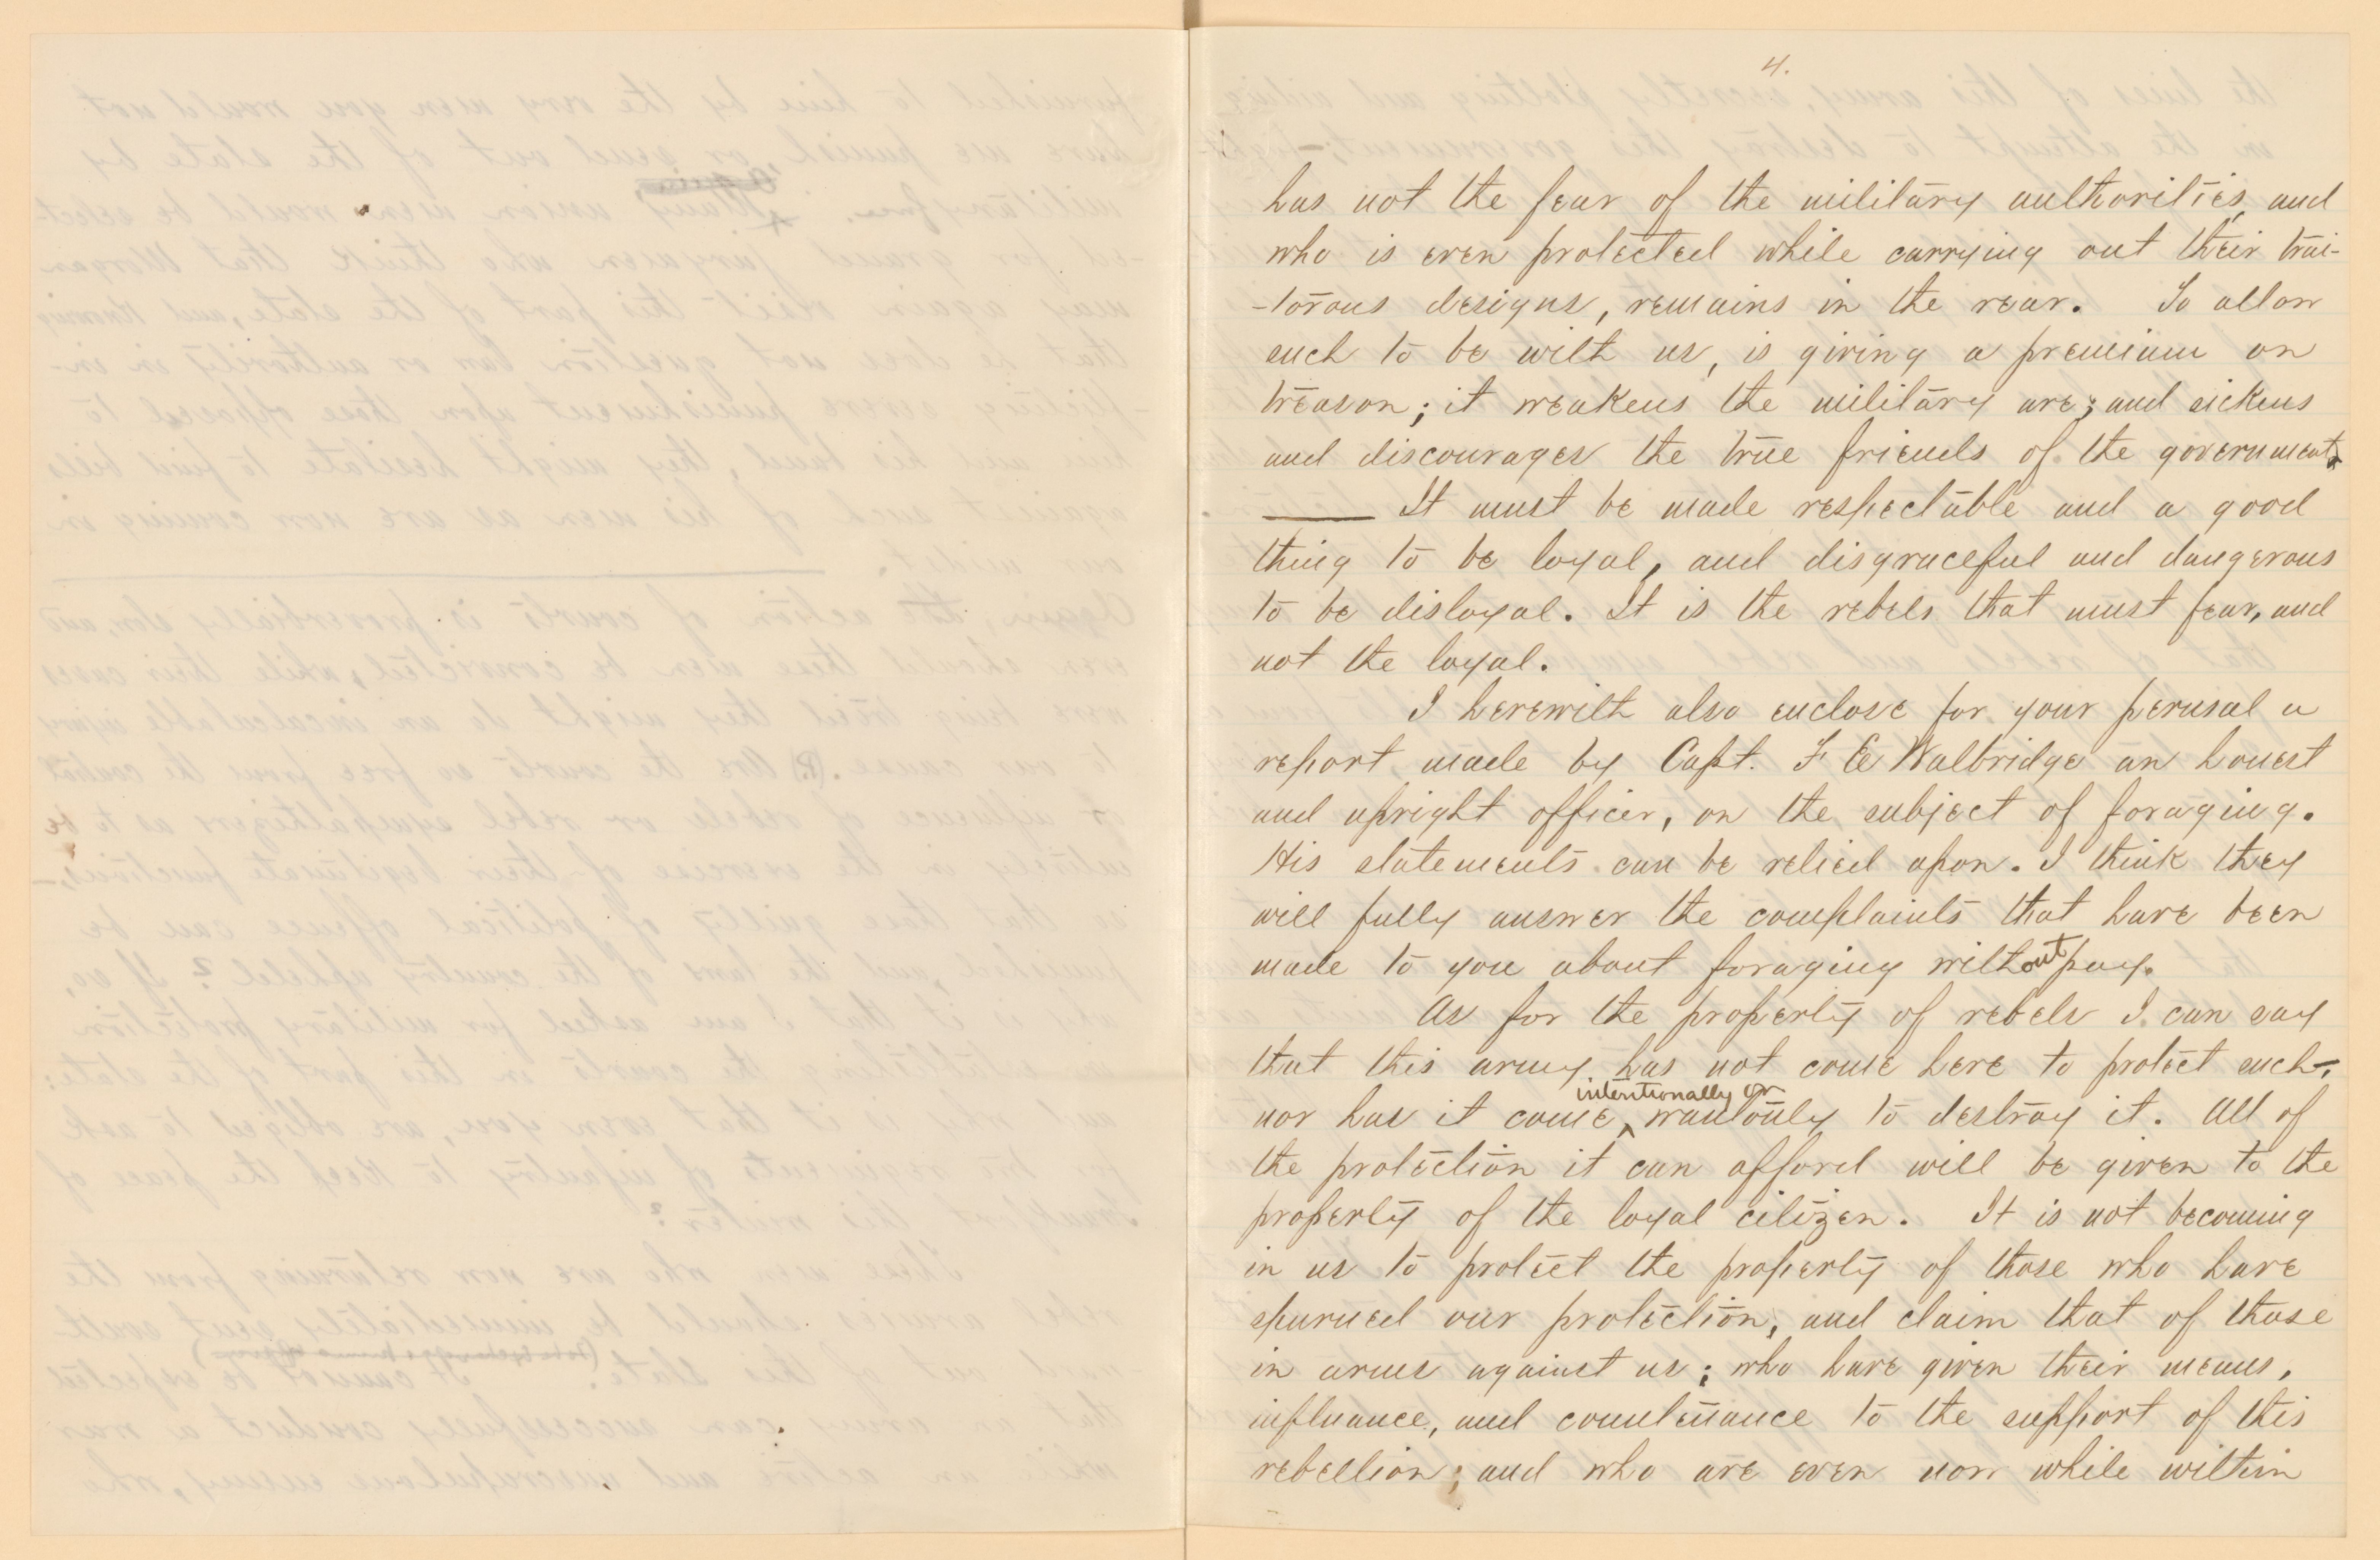 4.
has not the fear of the military authorities, and
who is even protected while carrying out their trai-
-torous designs, remains in the rear. To allow
such to be with us, is giving a premium on
treason; it weakens the military arm; and sickens
and discourages the true friends of the government.
It must be made respectable and a good
thing to be loyal, and disgraceful and dangerous
to be disloyal. It is the rebels that must fear, and
not the loyal.
I herewith also enclose for your perusal a
report made by Capt. F E Walbridge an honest
and upright officer, on the subject of foraging.
His statements can be relied upon. I think they
will fully answer the complaints that have been
made to you about foraging without pay.
As for the property of rebels I can say
that this army has not come here to protect such-;
nor has it come intentionally or wantonly to destroy it. All of
the protection it can afford will be given to the
property of the loyal citizen. It is not becoming
in us to protect the property of those who have
spurned our protection, and claim that of those
in arms against us; who have given their means,
influance, and countenance to the support of this
rebellion; and who are even now while within